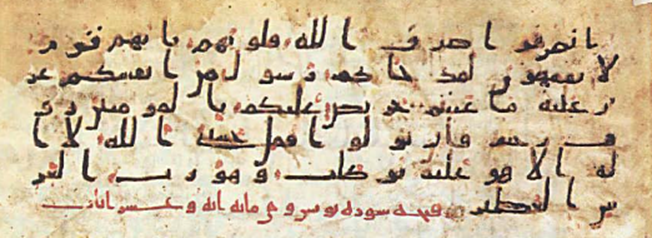 انصرفوا صرف الله قلوبهم بانهم قوم
لا يفقهون لقد جاكم رسول من انفسكم عز
يز عليه ما عنتم حريص عليكم بالمومنين رو
ف رحيم فان تولوا فقل حسبي الله لا ا
له الا هو عليه توكلت وهو رب العر
ش العظيم فتحه سوره يونس وهي مايه ايه وعشر ايات